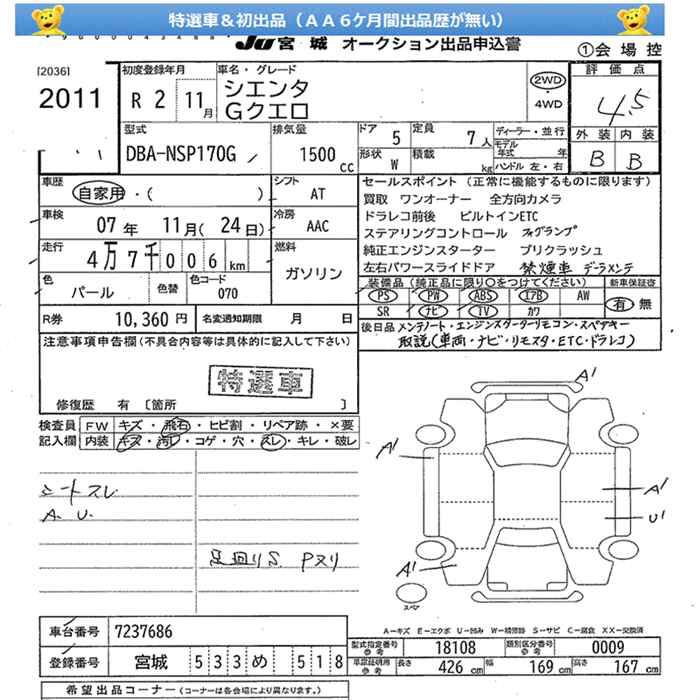 特選車＆初出品（ＡＡ６ケ月間出品歴が無い）
JU 宮城 オークション出品申込書
①会場控
[2036]
2011
初度登録年月
R 2 11月
車名・グレード
シエンタ
Gクエロ
2WD
・4WD
評価点
4.5
外装 内装
B B
型式
DBA-NSP170G
排気量
1500 cc
ドア 5
定員 7人
形状 W
積載 kg
ディーラー・並行
モデル年式 年
ハンドル 左・右
車歴
自家用・( )
シフト
AT
車検
07年 11月(24日)
冷房
AAC
走行
4万7千006km
燃料
ガソリン
色
パール
色替
色コード
070
R券 10,360円
名変通知期限 月 日
セールスポイント（正常に機能するものに限ります）
買取 ワンオーナー 全方向カメラ
ドラレコ前後 ビルトインETC
ステアリングコントロール フォグランプ
純正エンジンスターター プリクラッシュ
左右パワースライドドア 禁煙車 デーラメンテ
装備品（純正品に限り○をつけてください）
PS PW ABS エアB AW
SR ナビ TV カワ
新車保証書
有 無
後日品 メンテノート・エンジンスターターリモコン・スペアキー
取説(車両・ナビ・リモスタ・ETC・ドラレコ)
注意事項申告欄（不具合内容等は具体的に記入して下さい）
特選車
修復歴 有 〔箇所 〕
検査員記入欄
FW キズ・飛石・ヒビ割・リペア跡・×要
内装 キズ・汚レ・コゲ・穴・スレ・キレ・破レ
シートスレ
A. U.
足回りS Pスリ
A'
A'
A'
U'
A'
スペア
A－キズ E－エクボ U－凹み W－補修跡 S－サビ C－腐食 XX－交換済
車台番号 7237686
登録番号 宮城 533め 518
型式指定番号 参考 18108
類別区分番号 参考 0009
車庫証明用 参考 長さ 426cm 幅 169cm 高さ 167cm
希望出品コーナー（コーナーは各会場により異なります。）